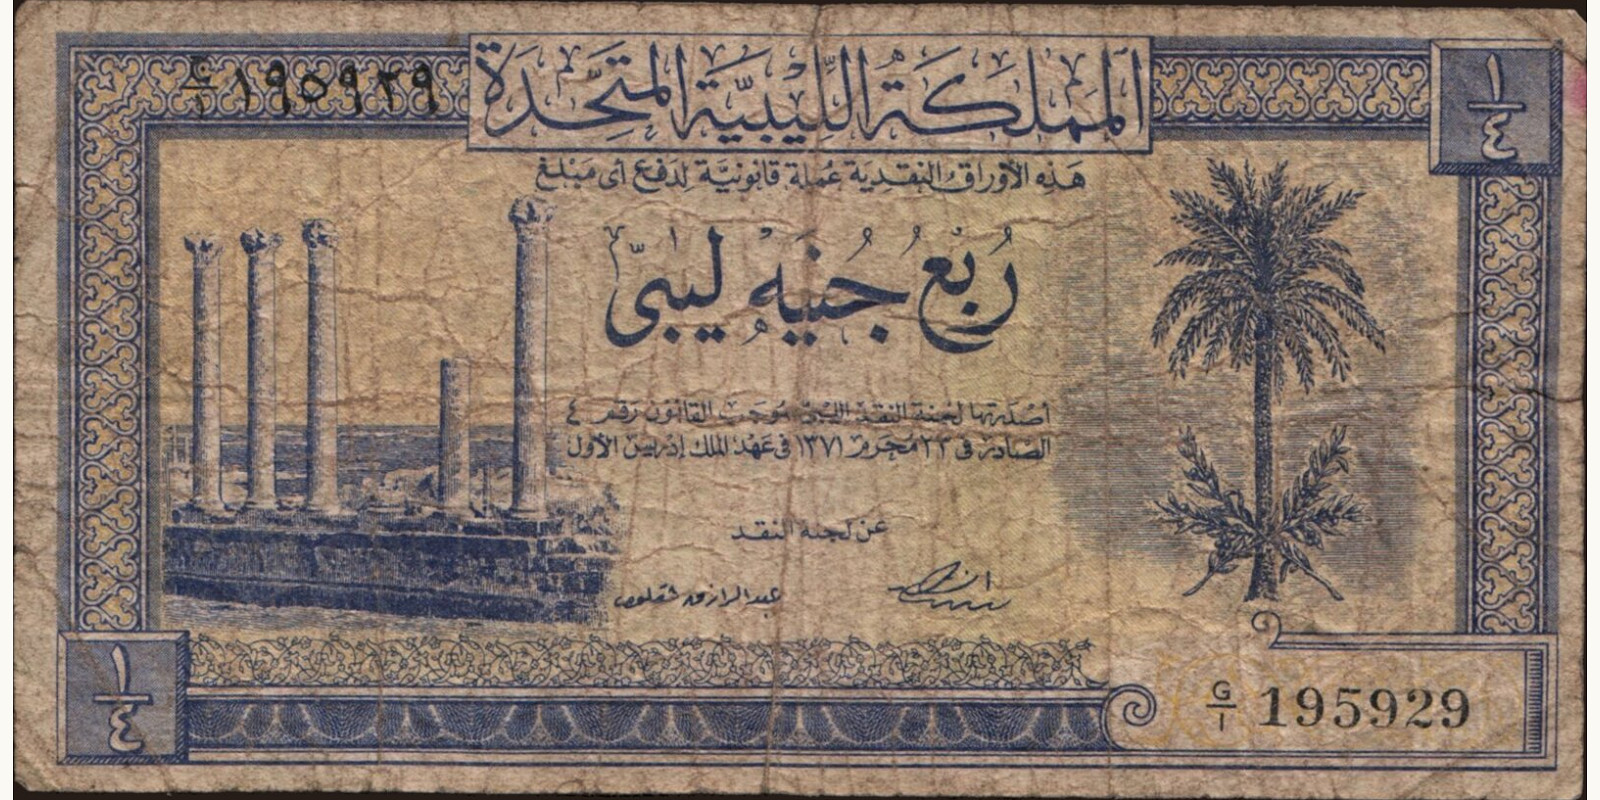 المملكة الليبية المتحدة
١٩٥٩٢٩
١/٤
هذه الأوراق النقدية عملة قانونية لدفع أى مبلغ
ربع جنيه ليبى
أصدرتها لجنة النقد الليبية بموجب القانون رقم ٤
الصادر فى ٢٣ محرم ١٣٧١ فى عهد الملك إدريس الأول
عن لجنة النقد
عبدالرازق شقلوف
١/٤
G/1 195929